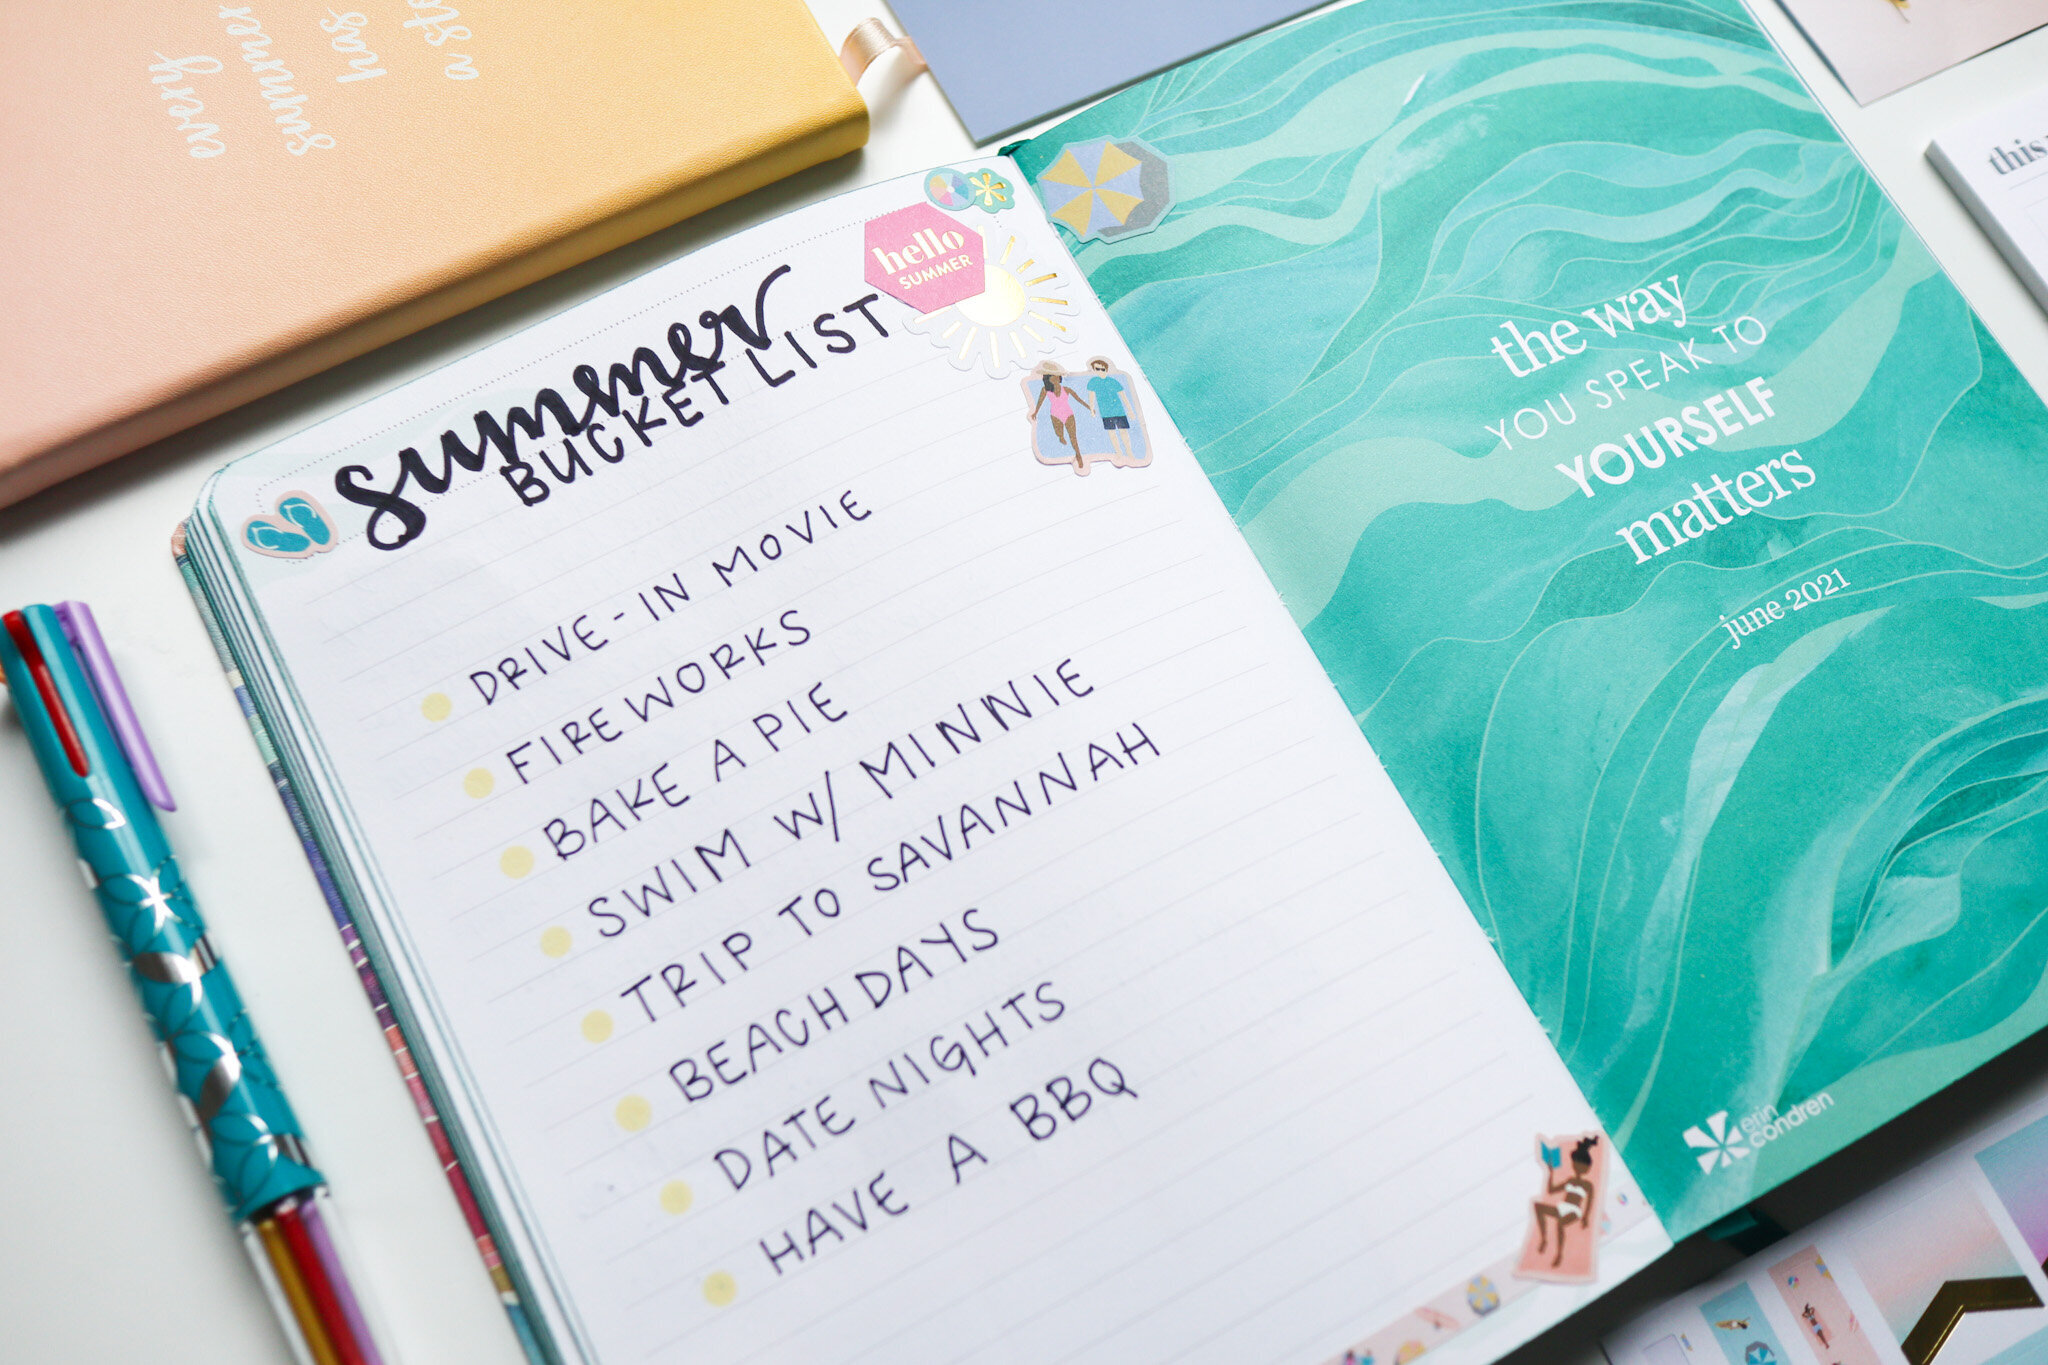 every
summer
has
a sto
summer
BUCKET LIST
hello
SUMMER
DRIVE-IN MOVIE
FIREWORKS
BAKE A PIE
SWIM W/ MINNIE
TRIP TO SAVANNAH
BEACH DAYS
DATE NIGHTS
HAVE A BBQ
the way
YOU SPEAK TO
YOURSELF
matters
june 2021
erin
condren
this